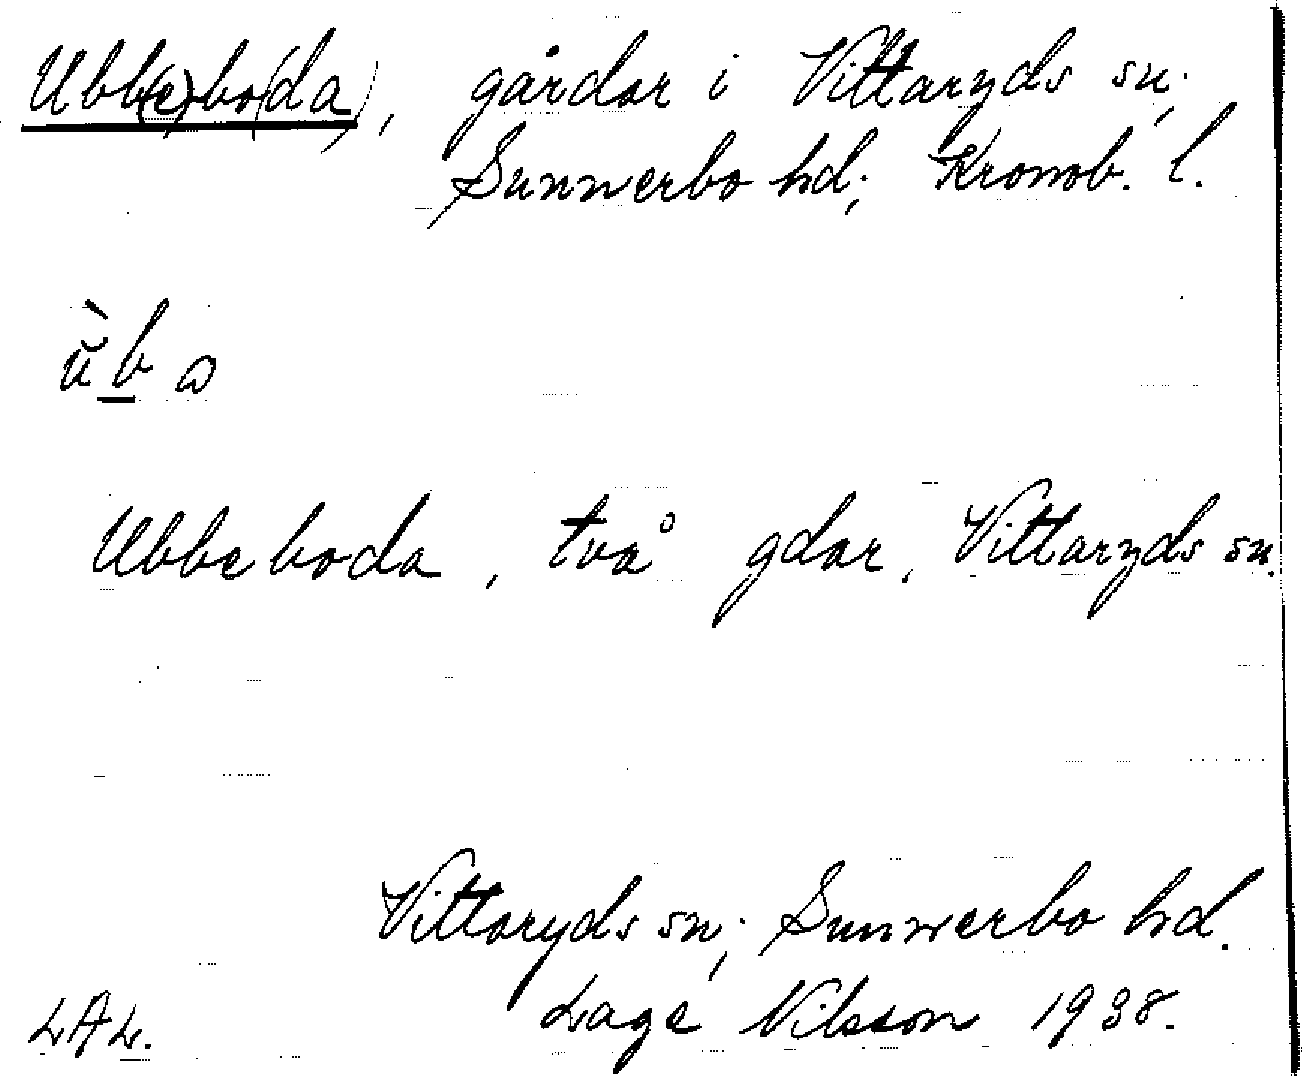 Ubb(e)bo(da), gårdar i Vittaryds sn,
Sunnerbo hd, Kronob. l.
Ubbeboda, två gdar, Vittaryds sn.
Vittaryds sn, Sunnerbo hd.
LAL. Lage Nilsson 1938.